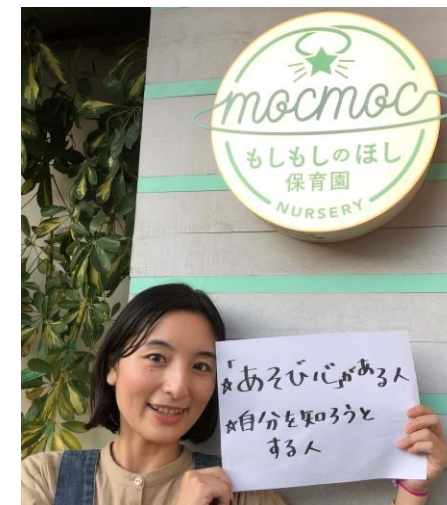 mocmoc
もしもしのほし
保育園
NURSERY
☆「あそび心」がある人
☆自分を知ろうと
する人